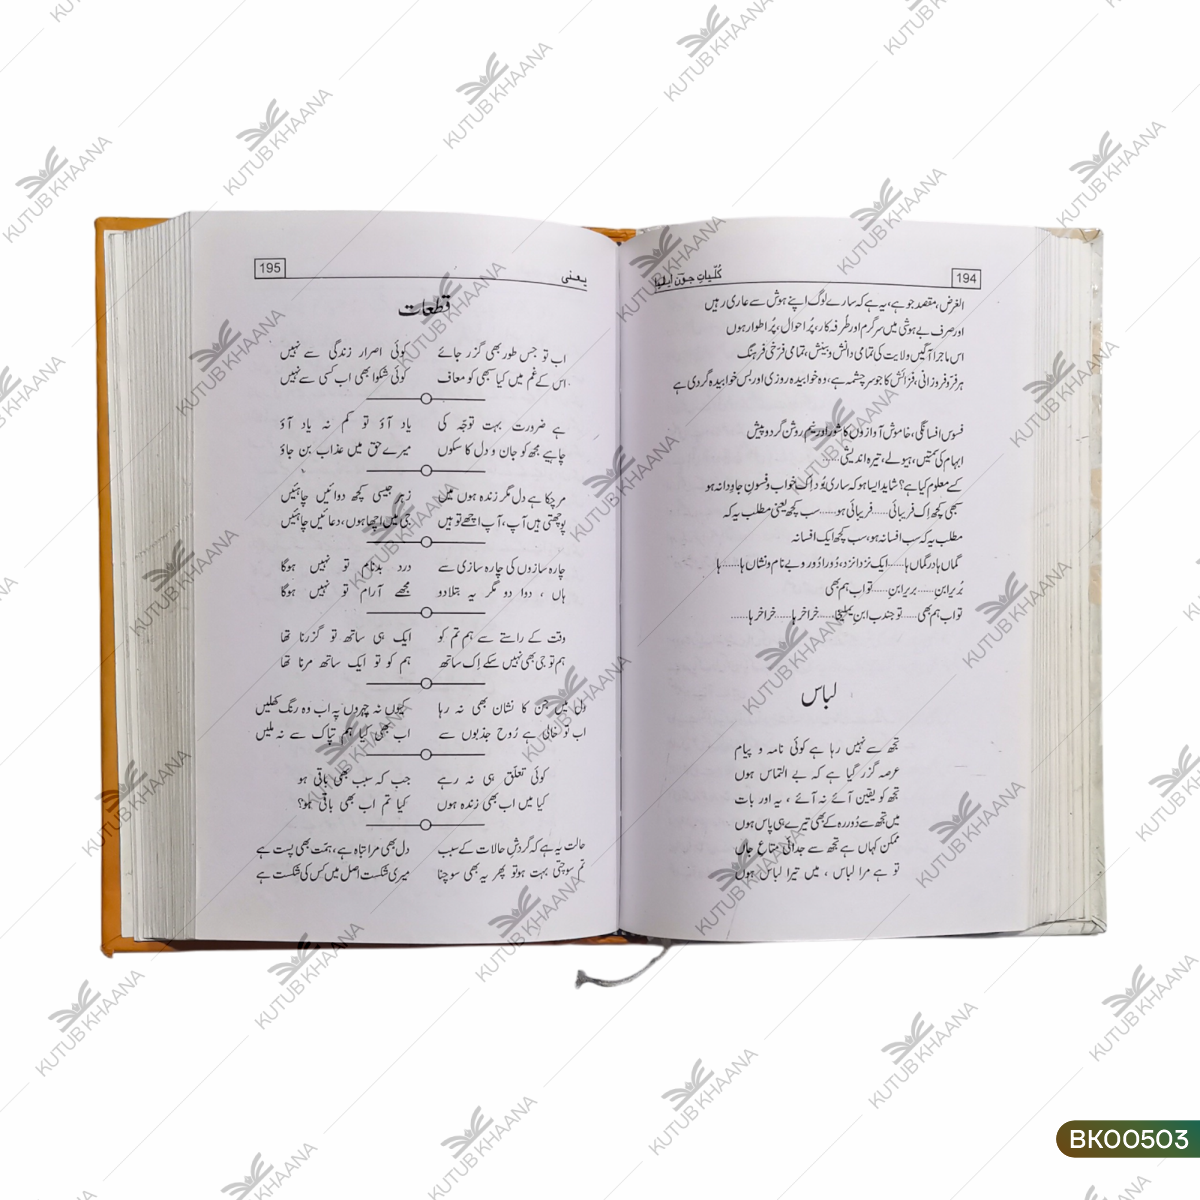 194
کُلّیاتِ جون ایلیا
الغرض، مقصد جو ہے، یہ ہے کہ سارے لوگ اپنے ہوش سے عاری رہیں
اور صرف بے ہوشی میں سرگرم اور طُرفہ کار، پُر احوال، پُر اطوار ہوں
اس ماجرا آگیں ولایت کی تمامی دانش و بینش، تمامی فرّخی فرہنگ
ہر فرّ و فروزانی، فزائش کا جو سرچشمہ ہے، وہ خوابیدہ روزی اور بس خوابیدہ گردی ہے
فسوس افسانگی، خاموش آوازوں کا شور اور نیم روشن گرد و پیش
ابہام کی سمتیں، ہیولے، تیرہ اندیشی......
کسے معلوم کیا ہے؟ شاید ایسا ہو کہ ساری بُود اِک خواب و فسونِ جاودانہ ہو
سبھی کچھ اِک فریبائی...... فریبائی ہو...... سب کچھ یعنی مطلب یہ کہ
مطلب یہ کہ سب افسانہ ہو، سب کچھ ایک افسانہ
گماں ہا در گماں ہا...... ایک نزدا نزد، دُورا دُور و بے نام و نشاں ہا...... ہا
بُربرابن...... بربرابن...... تو اب ہم بھی
تو اب ہم بھی...... تو جندب ابنِ یملیخا...... خراخر ہا...... خراخر ہا......
لباس
تجھ سے نہیں رہا ہے کوئی نامہ و پیام
عرصہ گزر گیا ہے کہ بے التماس ہوں
تجھ کو یقین آئے نہ آئے ، یہ اور بات
میں تجھ سے دُور رہ کے بھی تیرے ہی پاس ہوں
ممکن کہاں ہے تجھ سے جدائی متاعِ جاں
تو ہے مرا لباس ، میں تیرا لباس ہوں
یعنی
195
قطعات
اب تو جس طور بھی گزر جائے کوئی اصرار زندگی سے نہیں
اس کے غم میں کیا سبھی کو معاف کوئی شکوا بھی اب کسی سے نہیں
ہے ضرورت بہت توجّہ کی یاد آؤ تو کم نہ یاد آؤ
چاہیے مجھ کو جان و دل کا سکوں میرے حق میں عذاب بن جاؤ
مر چکا ہے دل مگر زندہ ہوں میں زہر جیسی کچھ دوائیں چاہئیں
پوچھتی ہیں آپ، آپ اچھے تو ہیں جی میں اچھا ہوں، دعائیں چاہئیں
چارہ سازوں کی چارہ سازی سے درد بدنام تو نہیں ہوگا
ہاں ، دوا دو مگر یہ بتلا دو مجھے آرام تو نہیں ہوگا
وقت کے راستے سے ہم تم کو ایک ہی ساتھ تو گزرنا تھا
ہم تو جی بھی نہیں سکے اِک ساتھ ہم کو تو ایک ساتھ مرنا تھا
دل میں جن کا نشان بھی نہ رہا کیوں نہ چہروں پہ اب وہ رنگ کھلیں
اب تو خالی ہے رُوح جذبوں سے اب بھی کیا ہم تپاک سے نہ ملیں
کوئی تعلّق ہی نہ رہے جب کہ سبب بھی باقی ہو
کیا میں اب بھی زندہ ہوں کیا تم اب بھی باقی ہو؟
حالت یہ ہے کہ گردشِ حالات کے سبب دل بھی مرا تباہ ہے، ہمّت بھی پست ہے
تم سوچتی بہت ہو تو پھر یہ بھی سوچنا میری شکست اصل میں کس کی شکست ہے
KUTUB KHAANA
BK00503